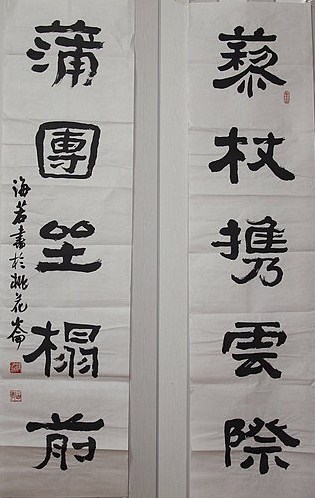 藜杖携雲際
蒲團坐榻前
海若書於桃花崙